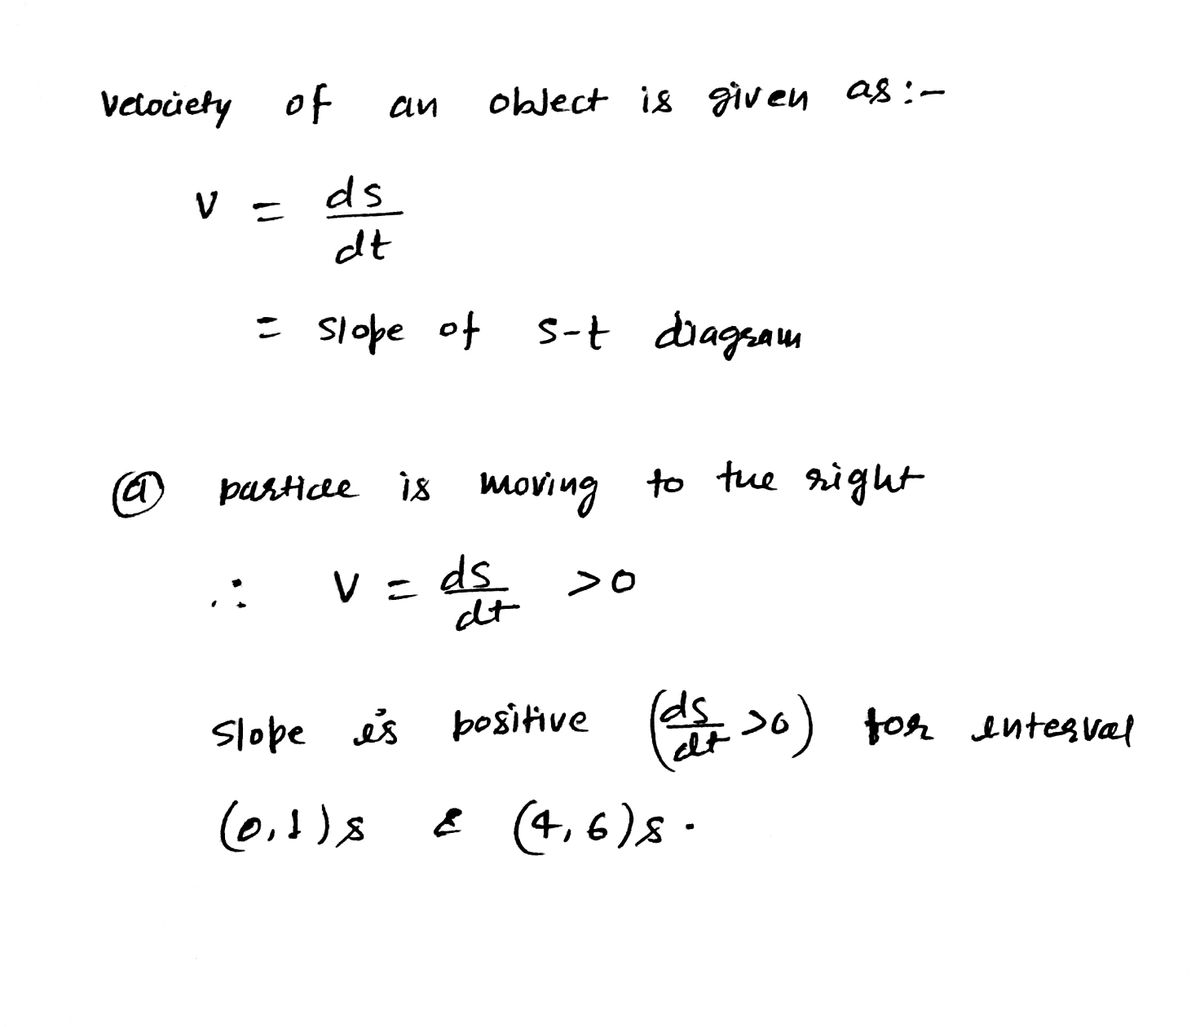 velociety of an object is given as :-
v = ds/dt
= slope of s-t diagram
(a) particle is moving to the right
∴ v = ds/dt >0
slope is positive (ds/dt >0) for interval
(0,1)s & (4,6)s.